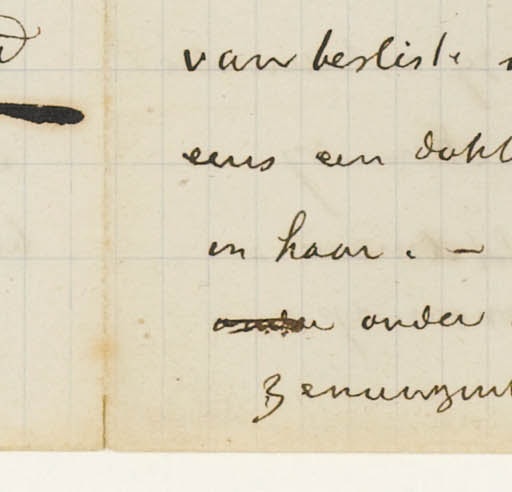 van besliste
eens een dokt
in haar. —
onder onder
zenuwzie